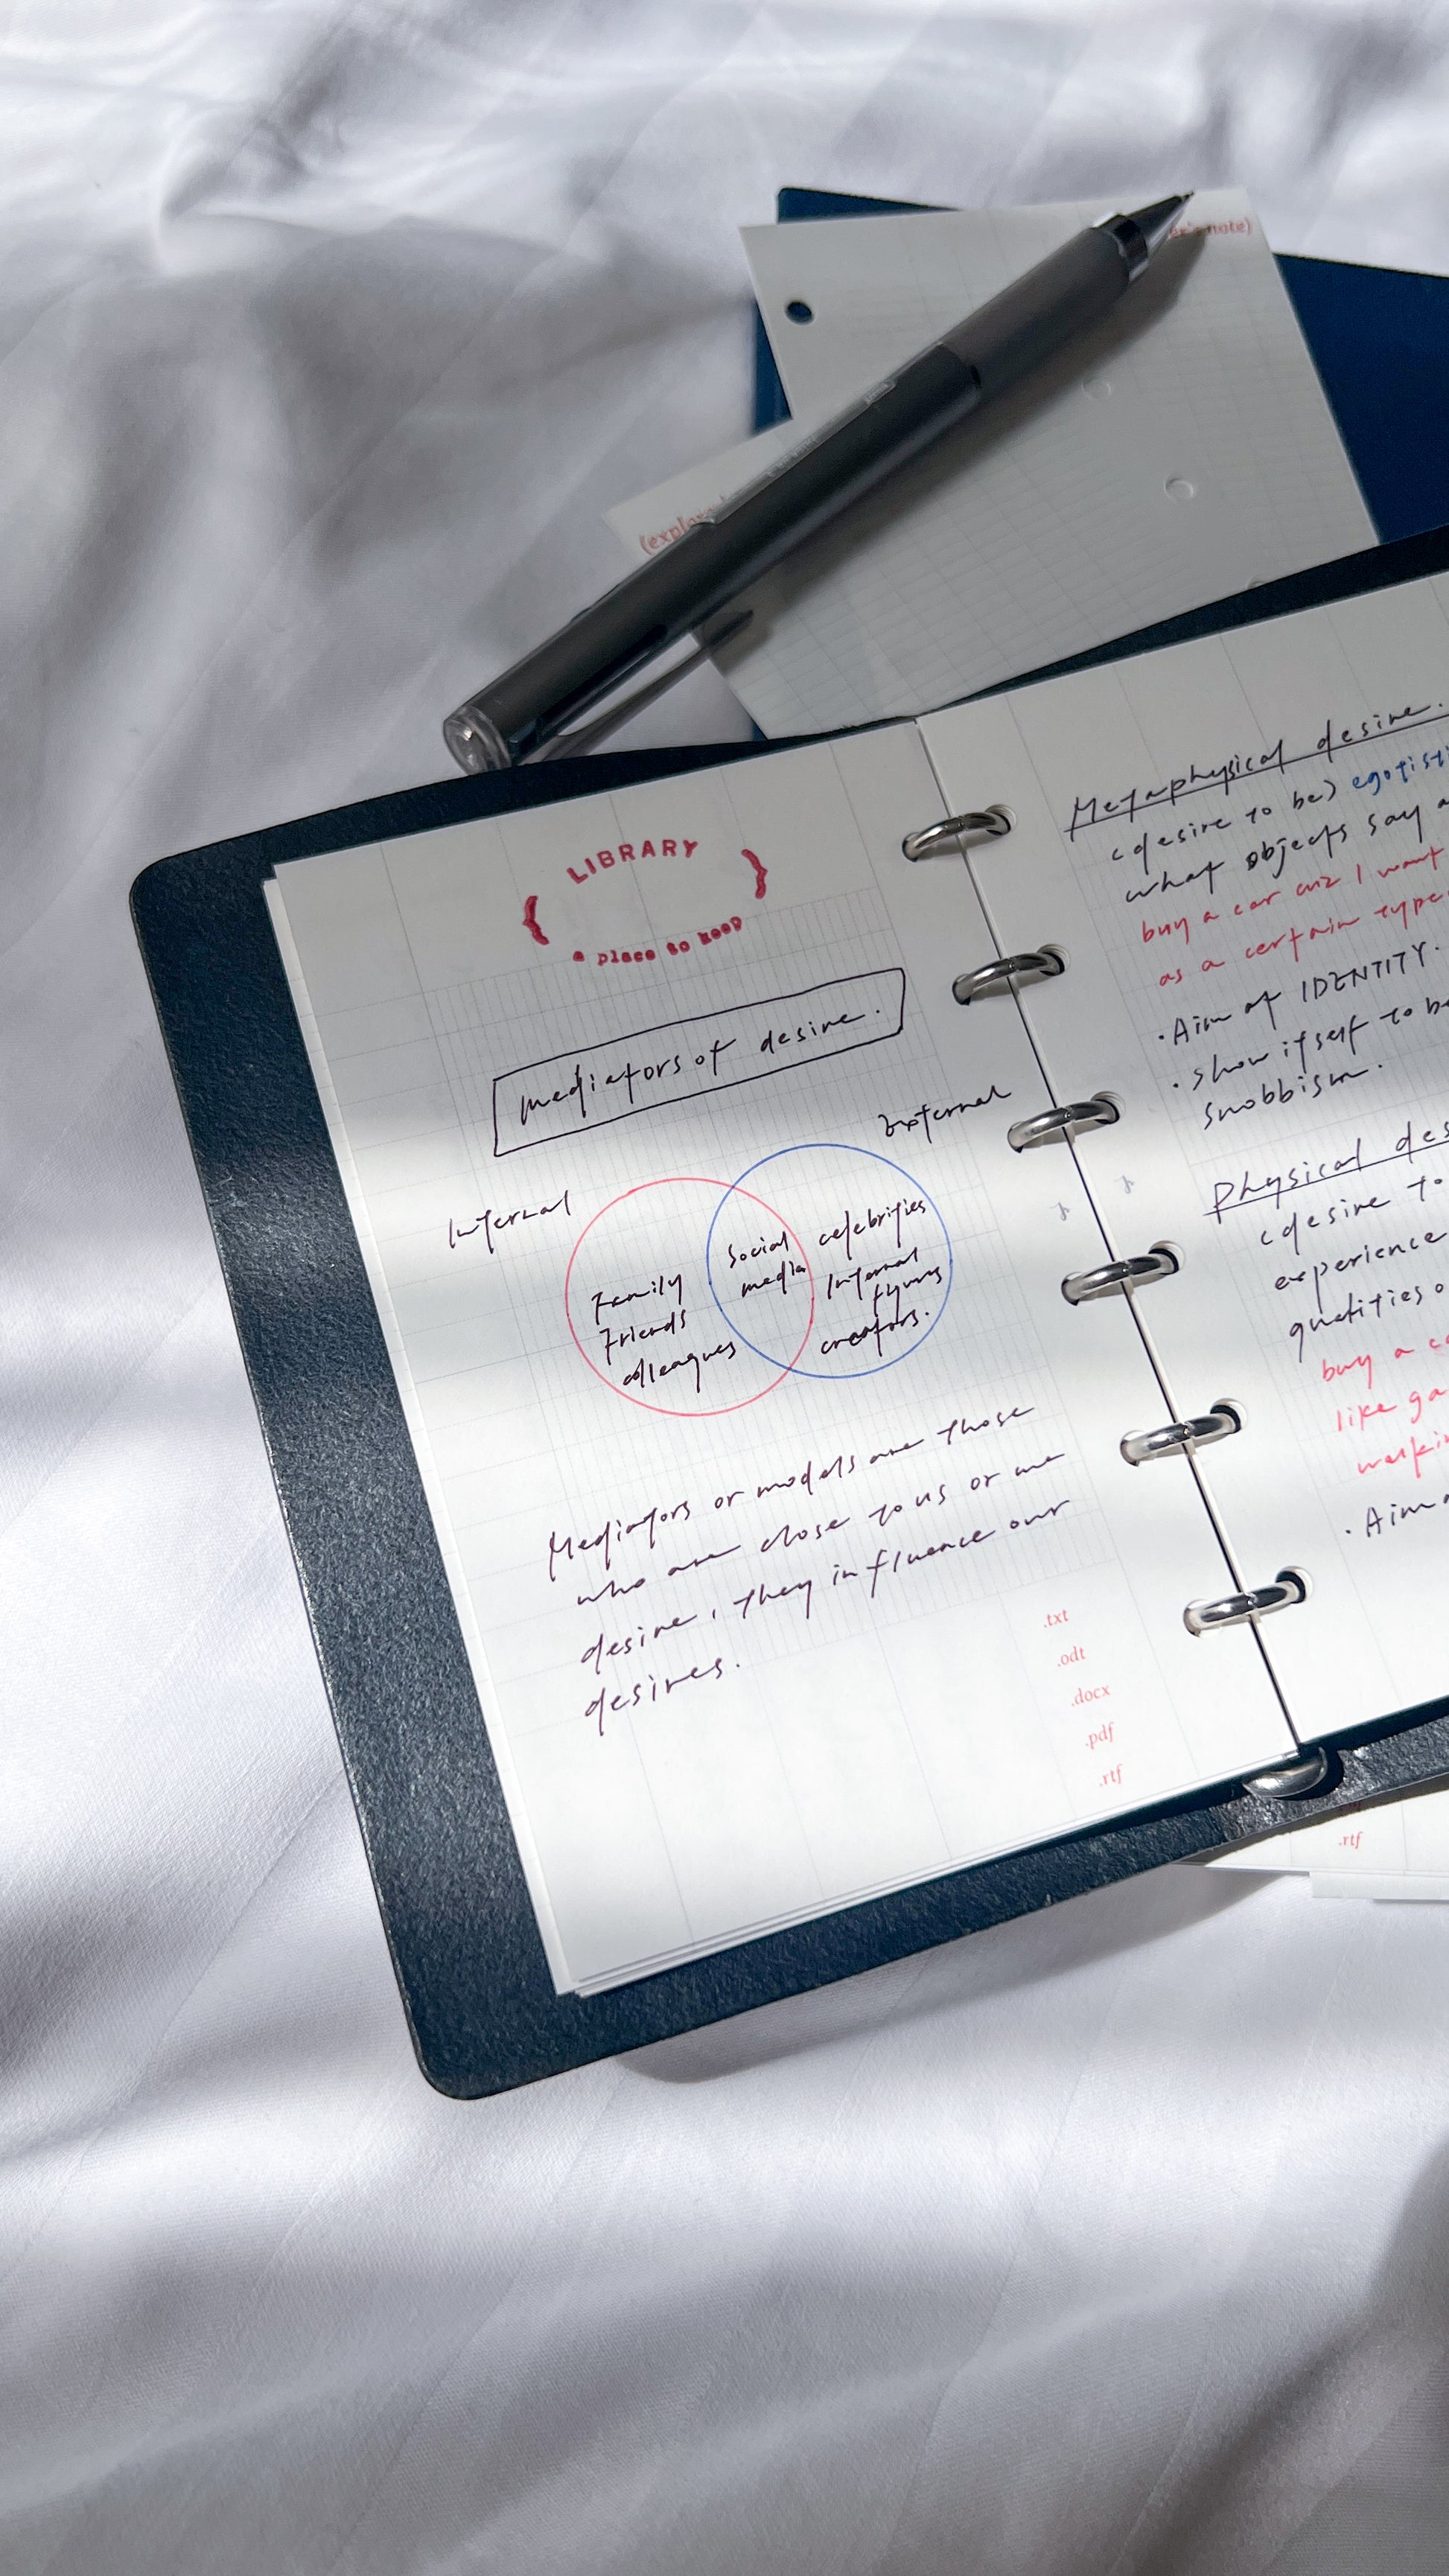 LIBRARY
a place to keep
mediators of desire.
External
Internal
Family
Friends
colleagues
Social
media
celebrities
Internal
figures
creators.
Mediators or models are those
who are close to us or we
desire, they influence our
desires.
.txt
.odt
.docx
.pdf
.rtf
Metaphysical desire.
(desire to be)
what objects say
buy a car cuz I want
as a certain type
• Aim at IDENTITY.
• show itself to be
snobbism.
Physical
(desire to
experience
qualities
buy a
like
• Aim
.rtf